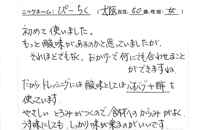 ニックネーム：ぴーちく（大阪在住．60歳，性別：女）
初めて使いました。
もっと酸味があるのかと思っていましたが、
それほどでもなく、おかげで何にでも合わせることが
できますね
だからドレッシングには酸味としては
を使ています。
やさしい とろみがつくので、食材へのからみがよく、
うす味にしても、しっかり味が乗るのがいいです。